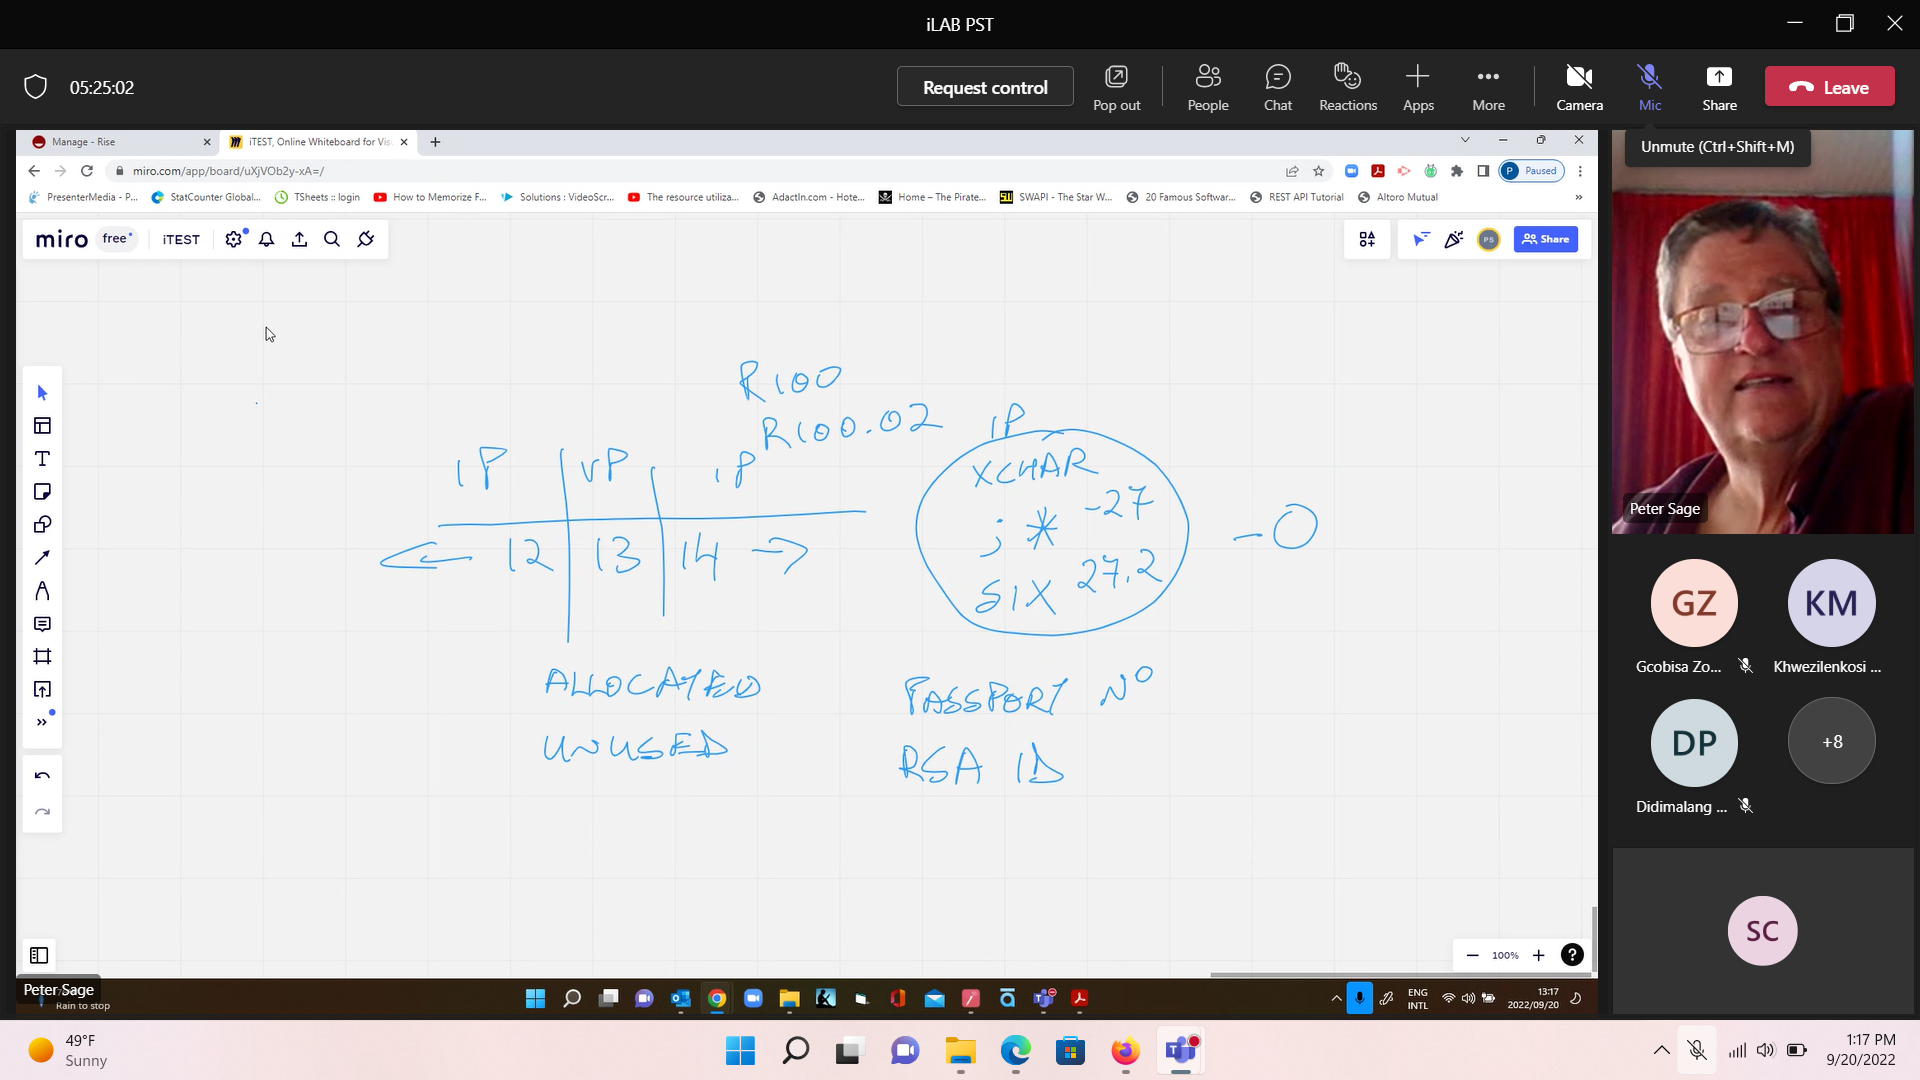 iLAB PST
05:25:02
Request control
Pop out
People
Chat
Reactions
Apps
More
Camera
Mic
Share
Leave
Unmute (Ctrl+Shift+M)
Manage - Rise
iTEST, Online Whiteboard for Vis
miro.com/app/board/uXjVOb2y-xA=/
P Paused
PresenterMedia - P...
StatCounter Global...
TSheets :: login
How to Memorize F...
Solutions : VideoScr...
The resource utiliza...
AdactIn.com - Hote...
Home – The Pirate...
SWAPI - The Star W...
20 Famous Softwar...
REST API Tutorial
Altoro Mutual
»
miro free iTEST
PS
Share
R100
R100.02
IP VP IP
12 13 14
IP
XCHAR
; * -27
SIX 27.2
-0
ALLOCATED
UNUSED
PASSPORT No
RSA ID
100%
?
Peter Sage
GZ
KM
Gcobisa Zo...
Khwezilenkosi ...
DP
+8
Didimalang ...
SC
Peter Sage
Rain to stop
ENG
INTL
13:17
2022/09/20
49°F
Sunny
1:17 PM
9/20/2022